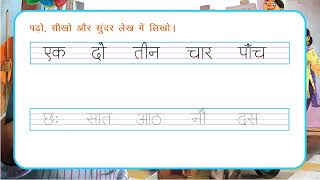 पढो, सीखो और सुंदर लेख में लिखो।
एक दो तीन चार पाँच
छः सात आठ नौ दस